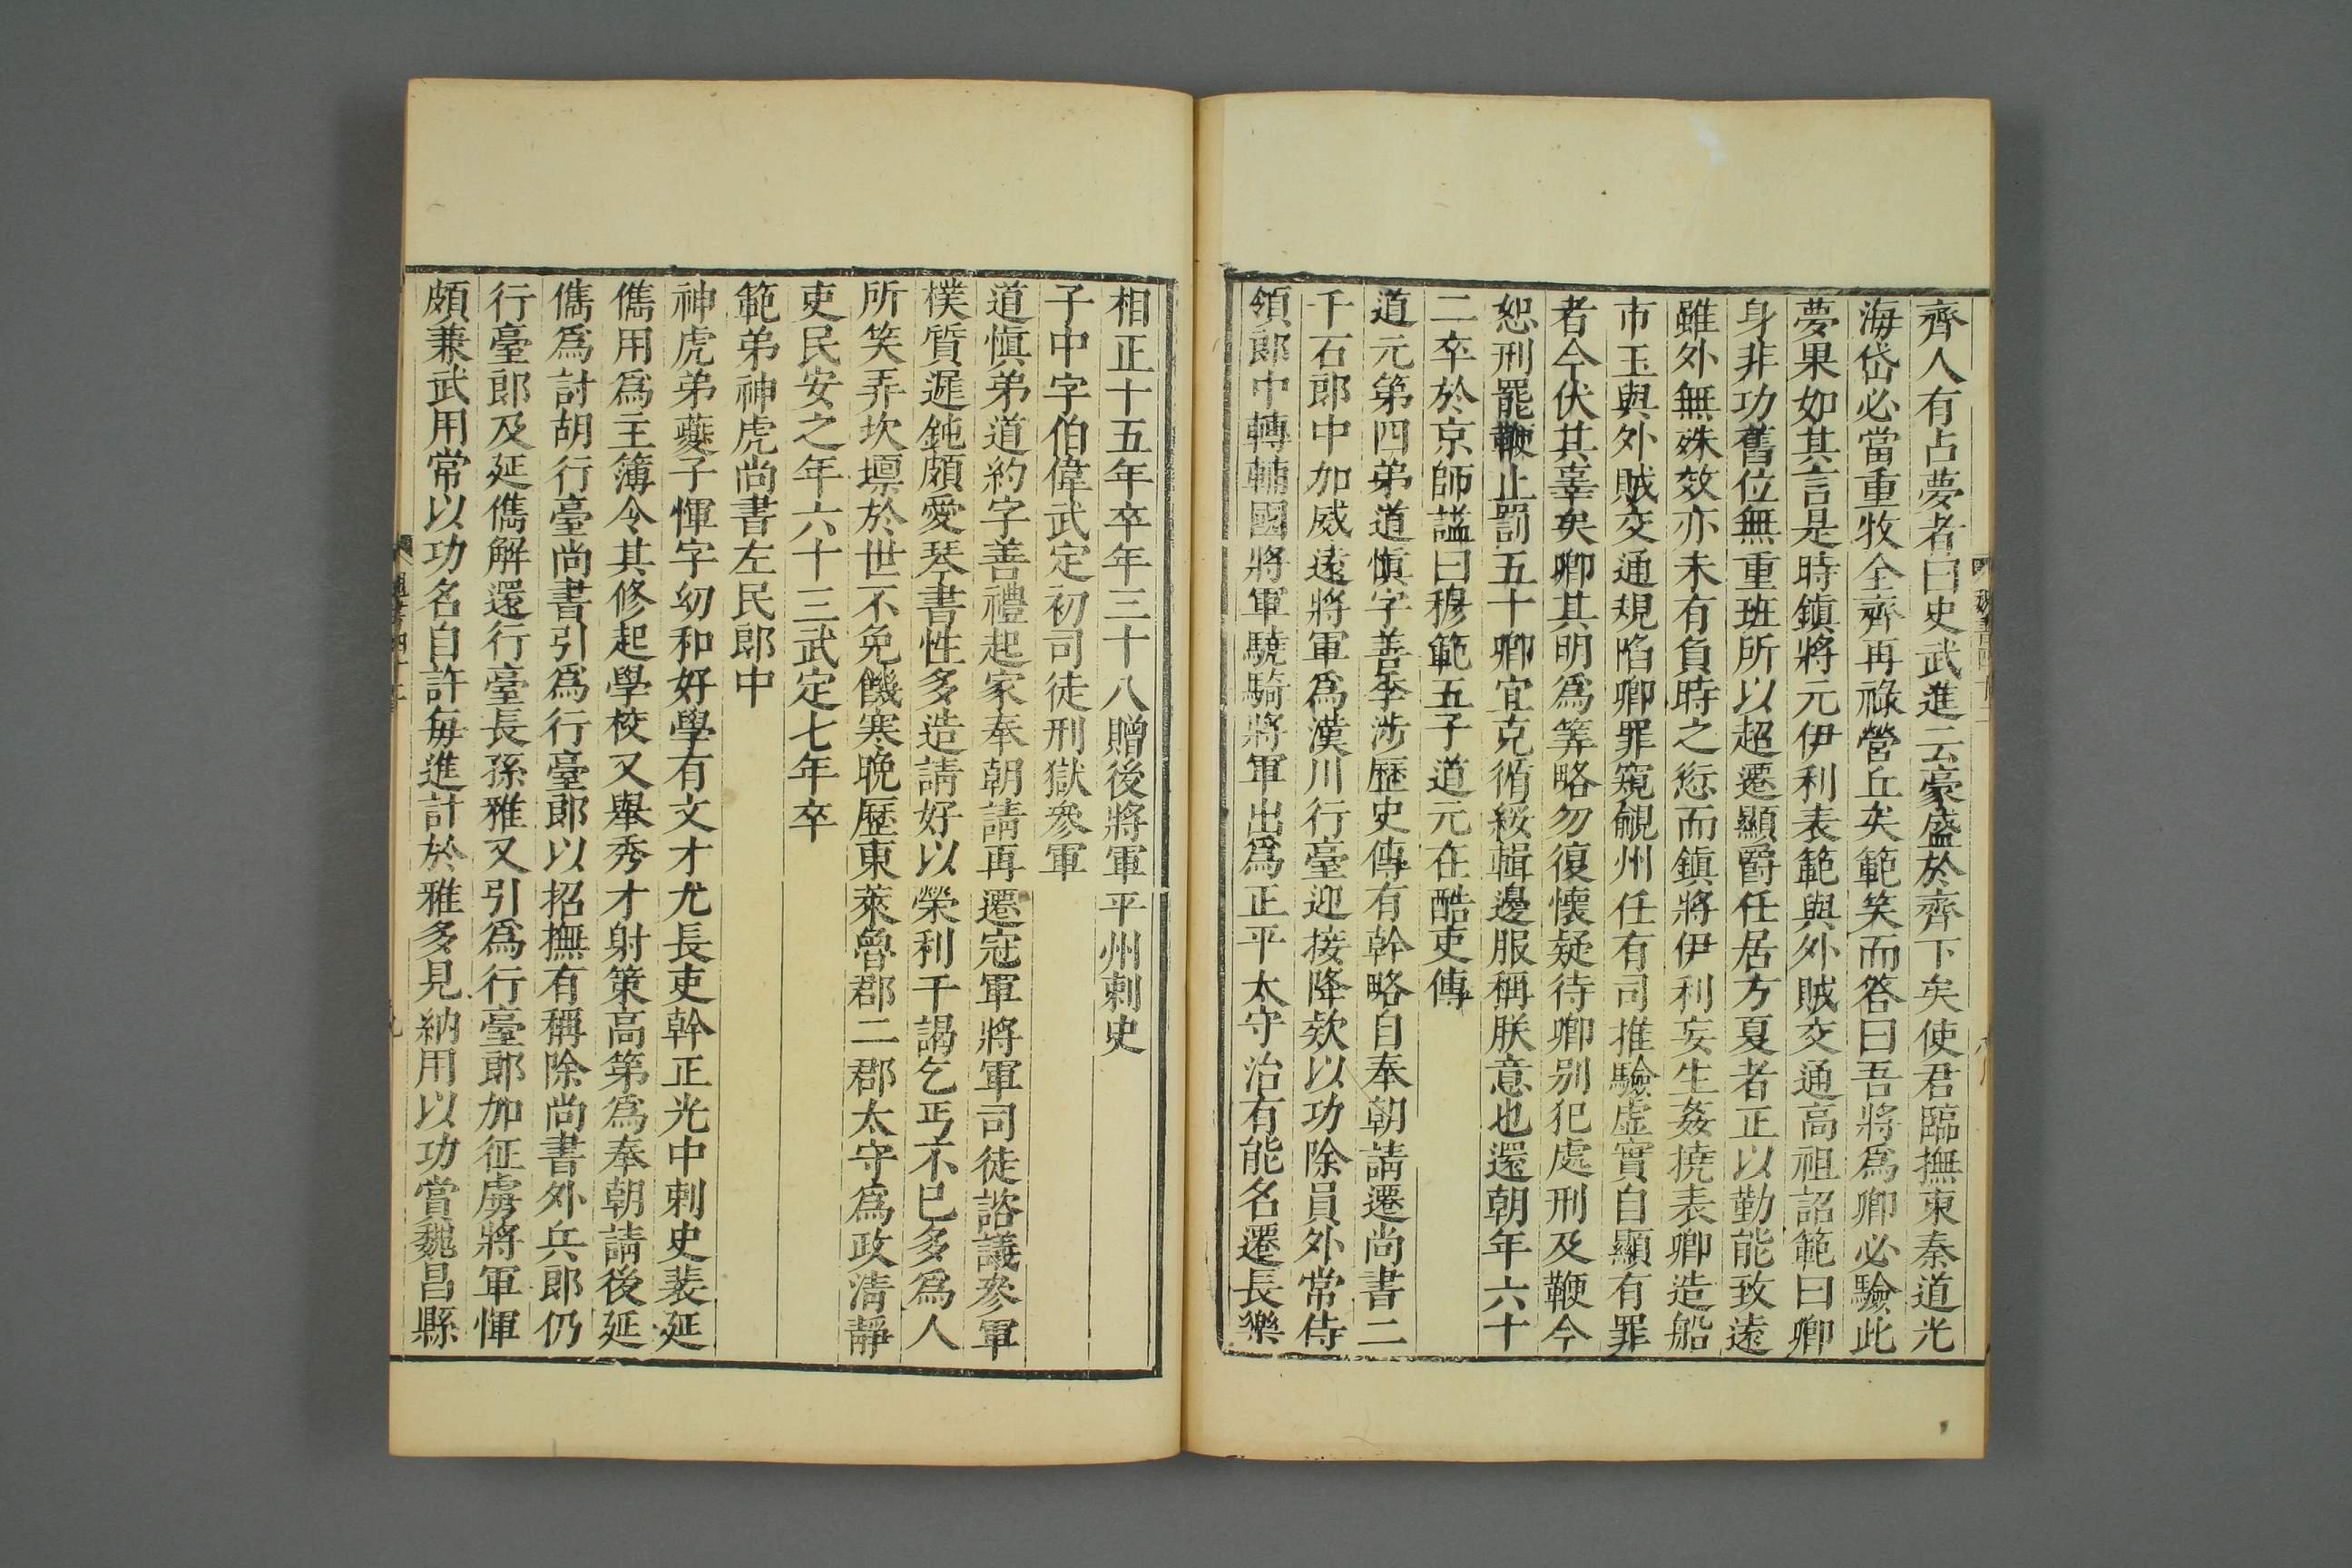 齊人有占夢者曰史武進云豪盛於齊下矣使君臨撫東秦道光
海岱必當重牧全齊再祿營丘矣範笑而答曰吾將爲卿必驗此
夢果如其言是時鎮將元伊利表範與外賊交通高祖詔範曰卿
身非功舊位無重班所以超遷顯爵任居方夏者正以勤能致遠
雖外無殊效亦未有負時之愆而鎮將伊利妄生姦撓表卿造船
市玉與外賊交通規陷卿罪窺覦州任有司推驗虛實自顯有罪
者今伏其辜矣卿其明爲筭略勿復懷疑待卿别犯處刑及鞭今
恕刑罷鞭止罰五十卿宜克循綏輯邊服稱朕意也還朝年六十
二卒於京師謚曰穆範五子道元在酷吏傳
道元第四弟道愼字善季涉歷史傳有幹略自奉朝請遷尚書二
千石郎中加威遠將軍爲漢川行臺迎接降欵以功除員外常侍
領郎中轉輔國將軍驍騎將軍出爲正平太守治有能名遷長樂
相正十五年卒年三十八贈後將軍平州刺史
子中字伯偉武定初司徒刑獄參軍
道愼弟道約字善禮起家奉朝請再遷冠軍將軍司徒諮議參軍
樸質遲鈍頗愛琴書性多造請好以榮利干謁乞丐不已多爲人
所笑弄坎壈於世不免饑寒晚歷東萊魯郡二郡太守爲政清靜
吏民安之年六十三武定七年卒
範弟神虎尚書左民郎中
神虎弟夔子惲字幼和好學有文才尤長吏幹正光中刺史裴延
儁用爲主簿令其修起學校又舉秀才射策高第爲奉朝請後延
儁爲討胡行臺尚書引爲行臺郎以招撫有稱除尚書外兵郎仍
行臺郎及延儁解還行臺長孫雅又引爲行臺郎加征虜將軍惲
頗兼武用常以功名自許每進計於雅多見納用以功當魏昌縣